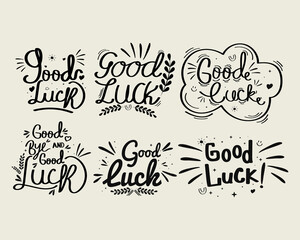 Good
Luck
Good
Luck
Goode
lucke
Good
Bye AND
Good
Luck
Good
Luck
Good
Luck!